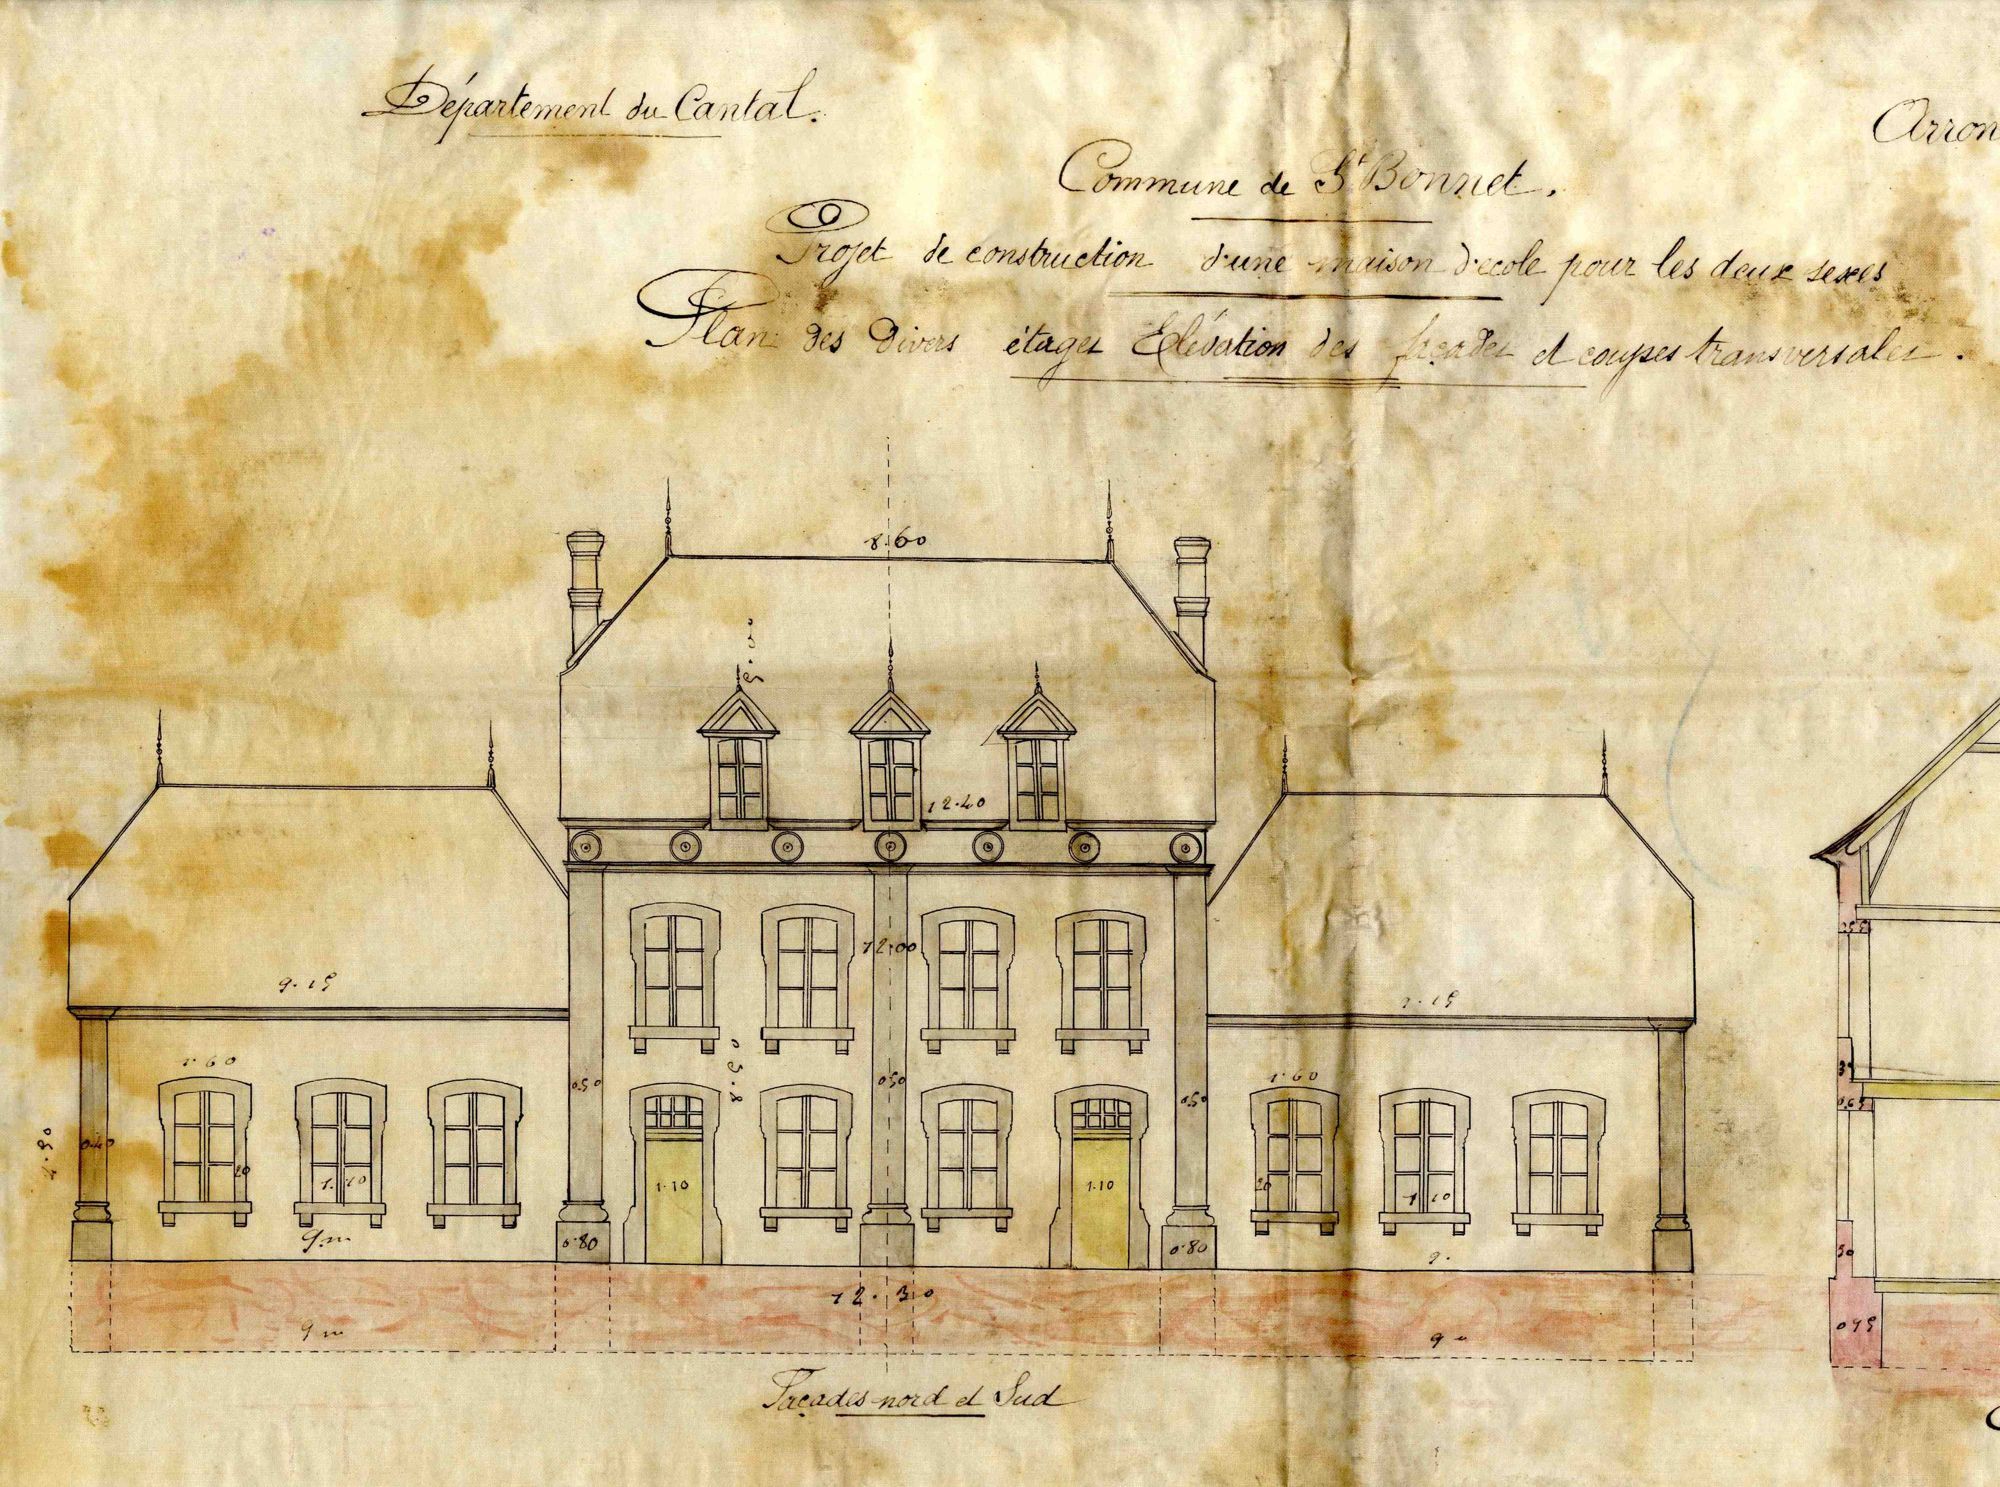 Département du Cantal.
Arron
Commune de St Bonnet.
Projet de construction d'une maison d'ecole pour les deux sexes
Plan des divers étages Elévation des façades et coupes transversales.
8.60
12.40
9.15
12.00
9.15
1.60
1.60
0.55
8.50
0.50
0.50
0.50
0.40
4.50
20
1.10
1.10
1.10
20
1.10
0.65
9.m
0.80
0.80
9.
50
12.30
9 m
9 m
0.75
Façades nord et Sud